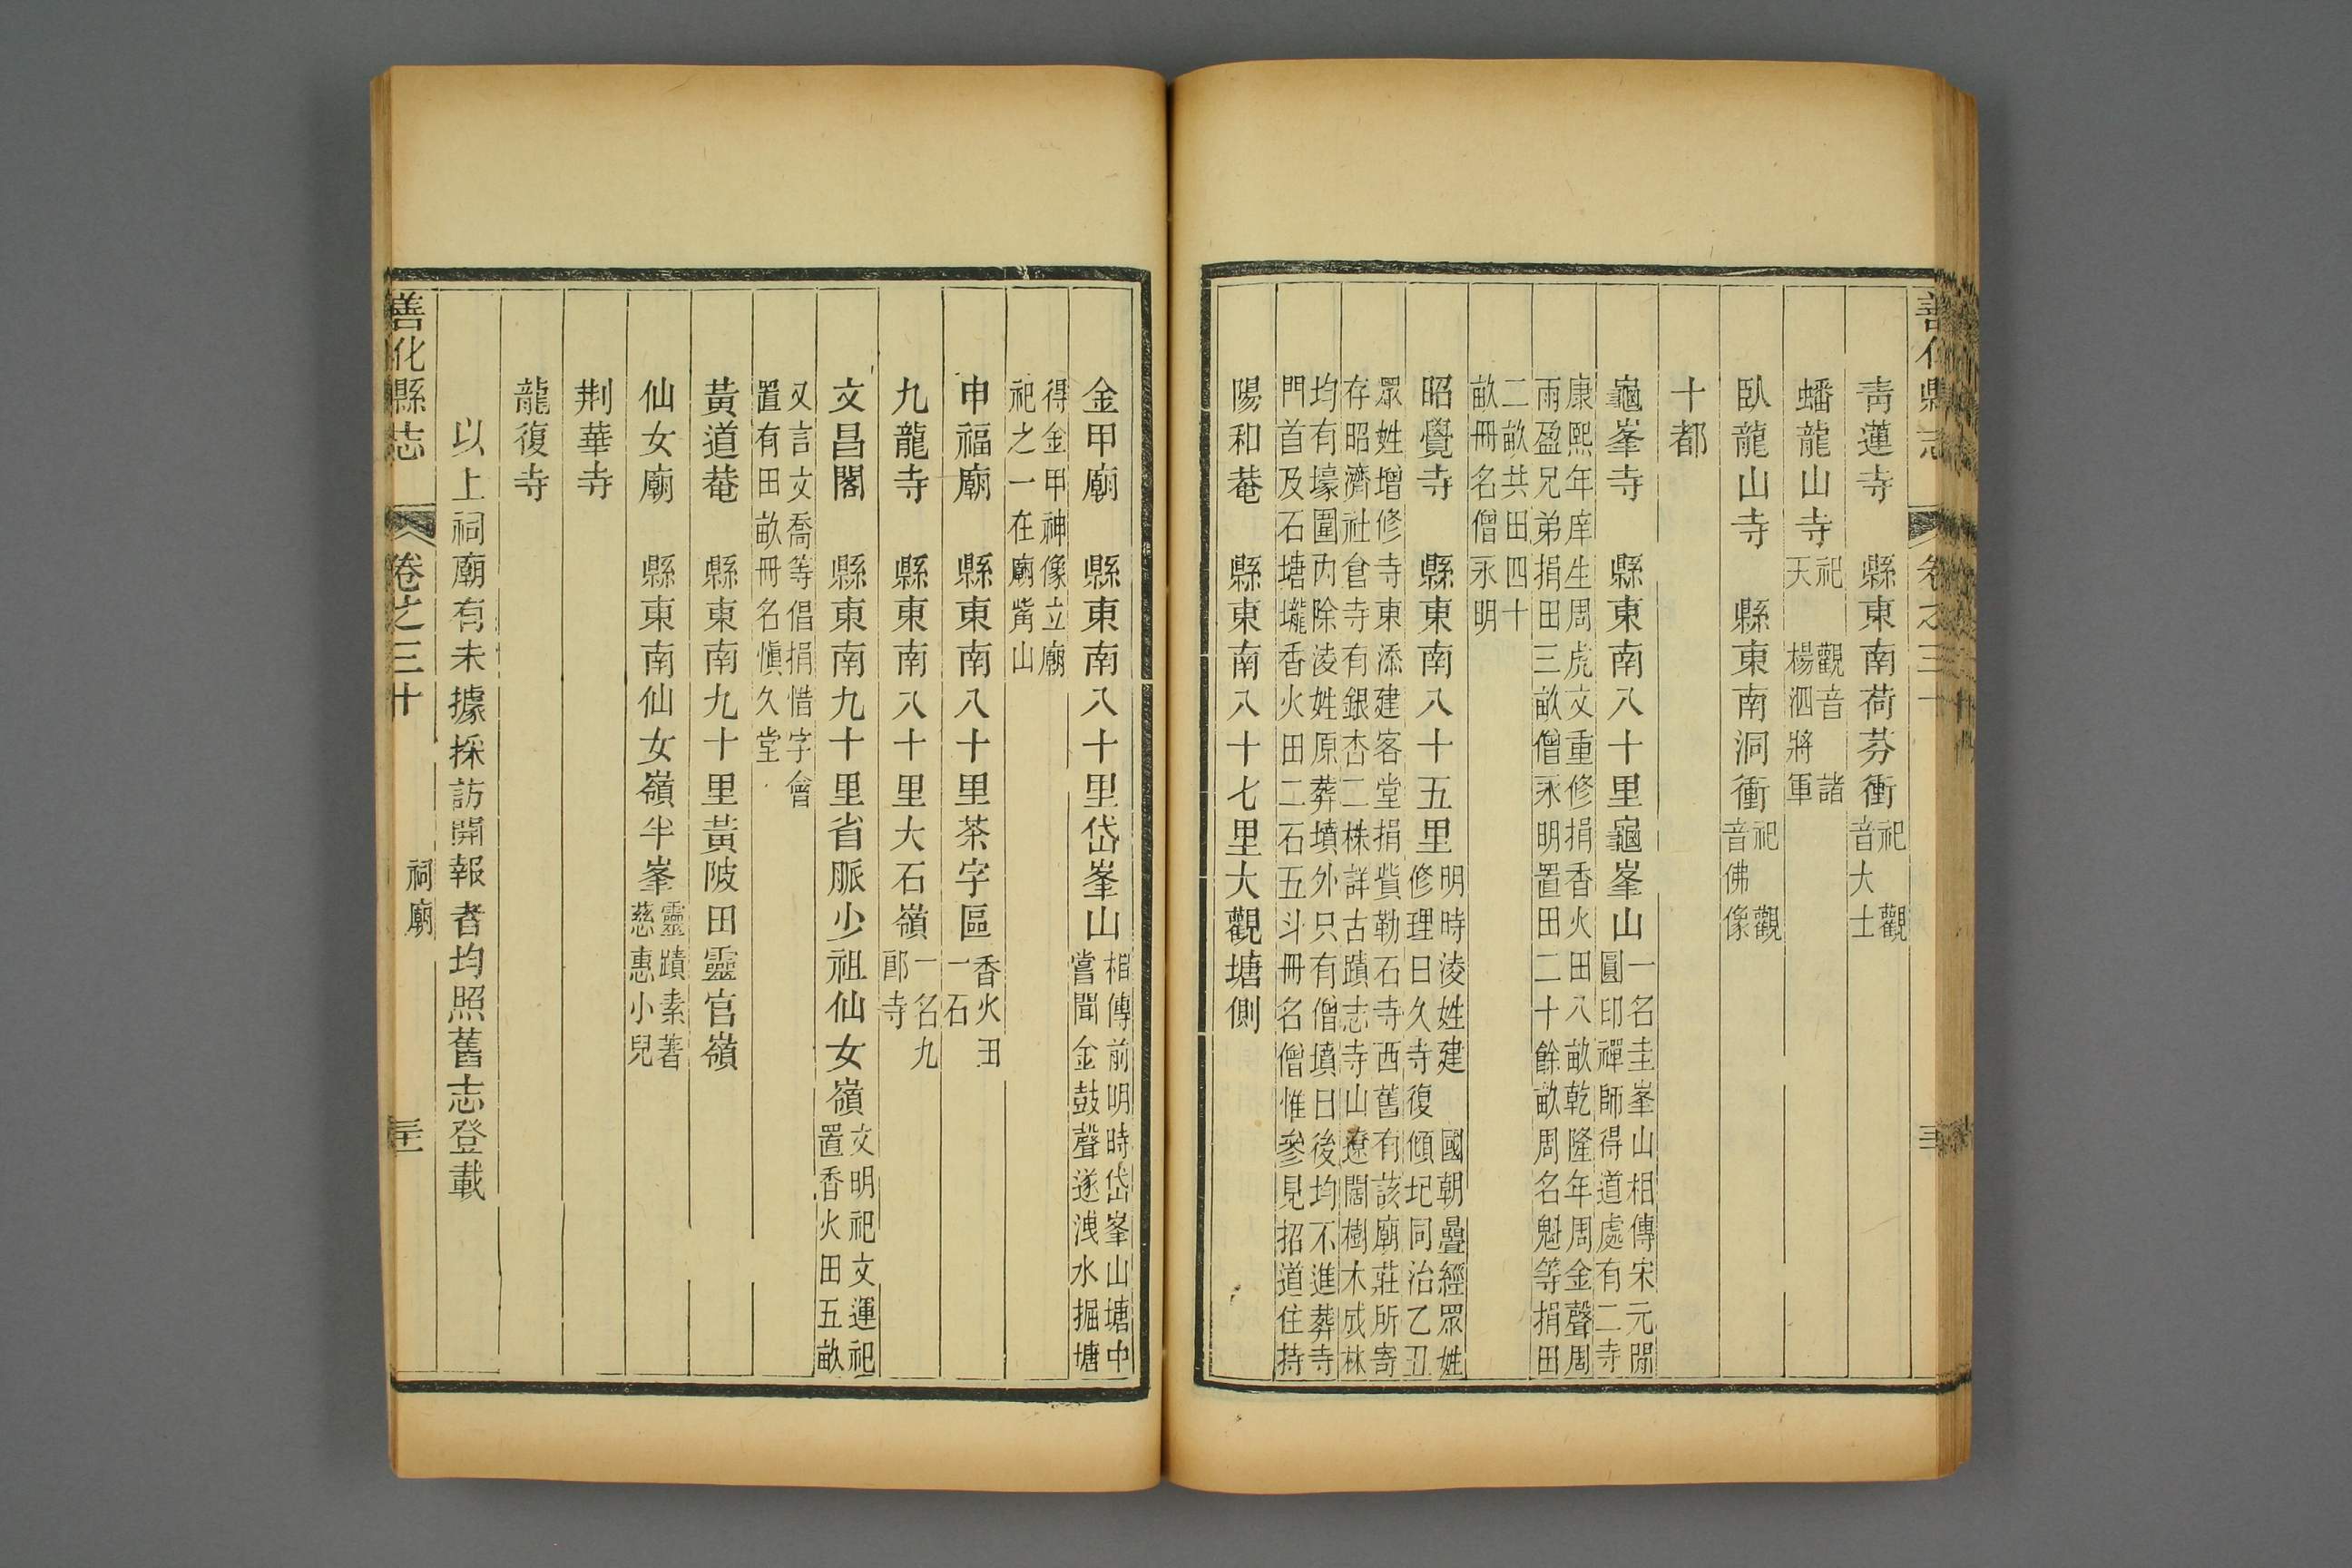 青蓮寺　縣東南荷芬衝祀觀音大士
蟠龍山寺祀觀音諸天楊泗將軍
臥龍山寺　縣東南洞衝祀觀音佛像
十都
龜峯寺　縣東南八十里龜峯山一名圭峯山相傳宋元間圓印禪師得道處有二寺
康熙年庠生周虎文重修捐香火田八畝乾隆年周金聲周雨盈兄弟捐田三畝僧永明置田二十餘畝周名魁等捐田
二畝共田四十畝冊名僧永明
昭覺寺　縣東南八十五里明時淩姓建　國朝疊經眾姓修理日久寺復傾圮同治乙丑
眾姓增修寺東添建客堂捐貲勒石寺西舊有該廟莊所寄存昭濟社倉寺有銀杏二株詳古蹟志寺山遼闊樹木成林
均有壕圍內除淩姓原葬墳外只有僧墳日後均不進葬寺門首及石塘壠香火田二石五斗冊名僧惟參見招道住持
陽和菴　縣東南八十七里大觀塘側
金甲廟　縣東南八十里岱峯山相傳前明時岱峯山塘中嘗聞金鼓聲遂洩水掘塘
得金甲神像立廟祀之一在廟嘴山
申福廟　縣東南八十里茶字區香火田一石
九龍寺　縣東南八十里大石嶺一名九郎寺
文昌閣　縣東南九十里省脈少祖仙女嶺文明祀文運祀置香火田五畝
又言文喬等倡捐惜字會置有田畝冊名愼久堂
黃道菴　縣東南九十里黃陂田靈官嶺
仙女廟　縣東南仙女嶺半峯靈蹟素著慈惠小兒
荆華寺
龍復寺
以上祠廟有未據採訪開報者均照舊志登載
善化縣志　卷之三十　祠廟